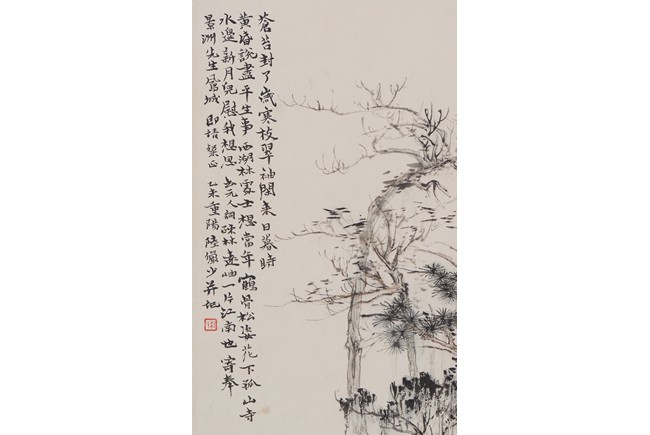 蒼苔封了歲寒枝翠袖閒来日暮時
黄昏說盡平生事西湖林處士想當年鶴骨松姿花下孤山寺
水邊新月兒慰我想思元人詞疎林遠岫一片江南也寄奉
景洲先生鳳城即正乙未重陽陸儼少并記